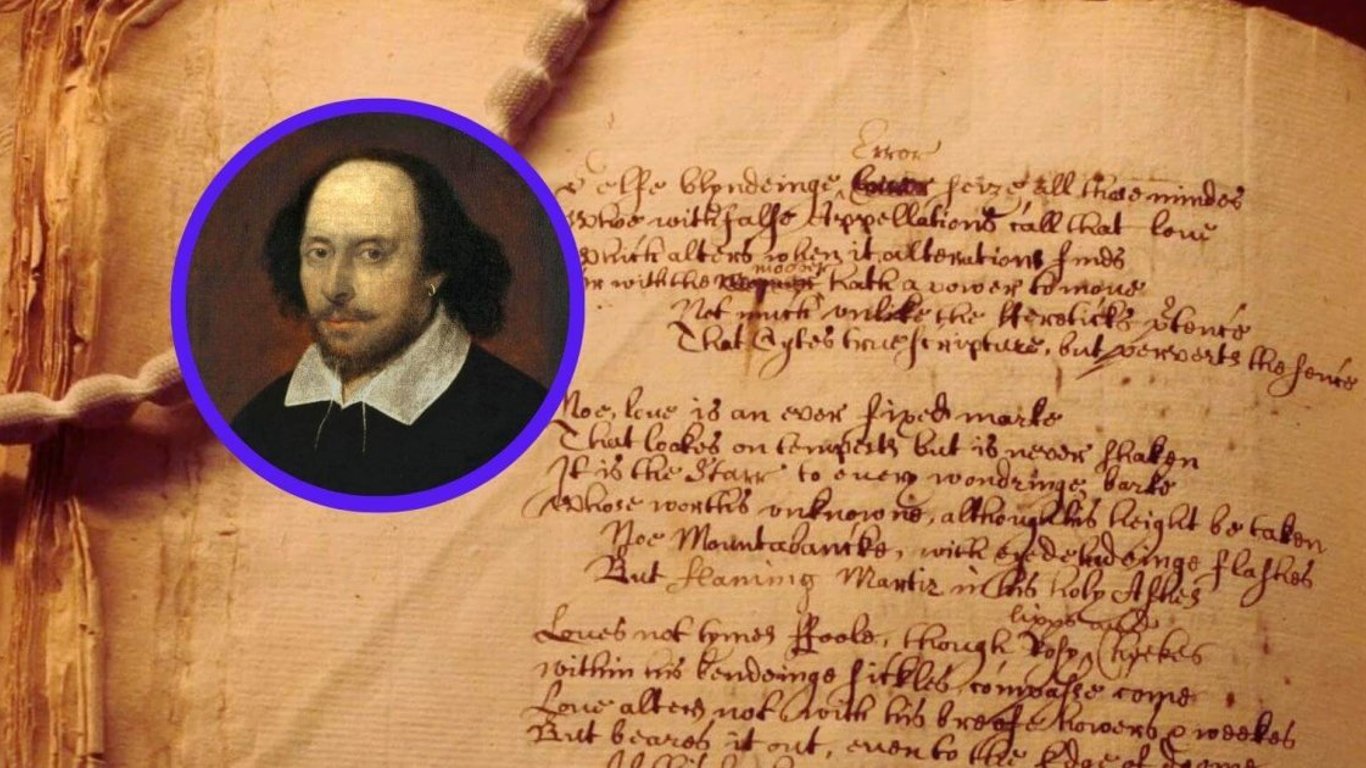 Error
Selfe blyndeinge seize all those mindes
Whoe with false Appellations call that love
Which alters when it alterations finds
mover
Or with the hath a power to move
Not much unlike the Hereticks ptence
That Cytes true scripture, but perverts the sence
Noe, love is an ever fixed marke
That lookes on tempests but is never shaken
It is the Starr to every wondringe barke
Whose worths unknowne, although his height be taken
Noe Mountabancke, with eyedeludeinge flashes
But flaming Martir in his holy Ashes
lipps and
Loves not tymes Foole, though Rosy Cheekes
within his bendeinge sickles compasse come
Love alters not with his breife howers & weekes
But beares it out, even to the Edge of doome